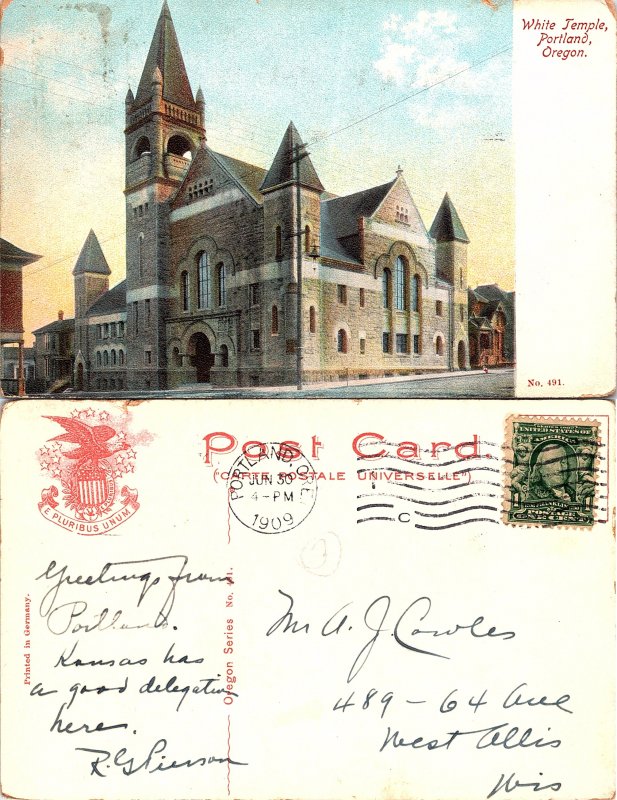 White Temple,
Portland,
Oregon.
No. 491.
Post Card.
("CARTE POSTALE UNIVERSELLE")
E PLURIBUS UNUM
PORTLAND, ORE.
JUN 30
4-PM
1909
C
UNITED STATES OF
AMERICA
1
Printed in Germany.
Oregon Series No. 491.
Greetings from
Portland.
Kansas has
a good delegation
here.
R.G. Pierson
Mr A. J. Cowles
489 - 64 Ave
West Allis
Wis